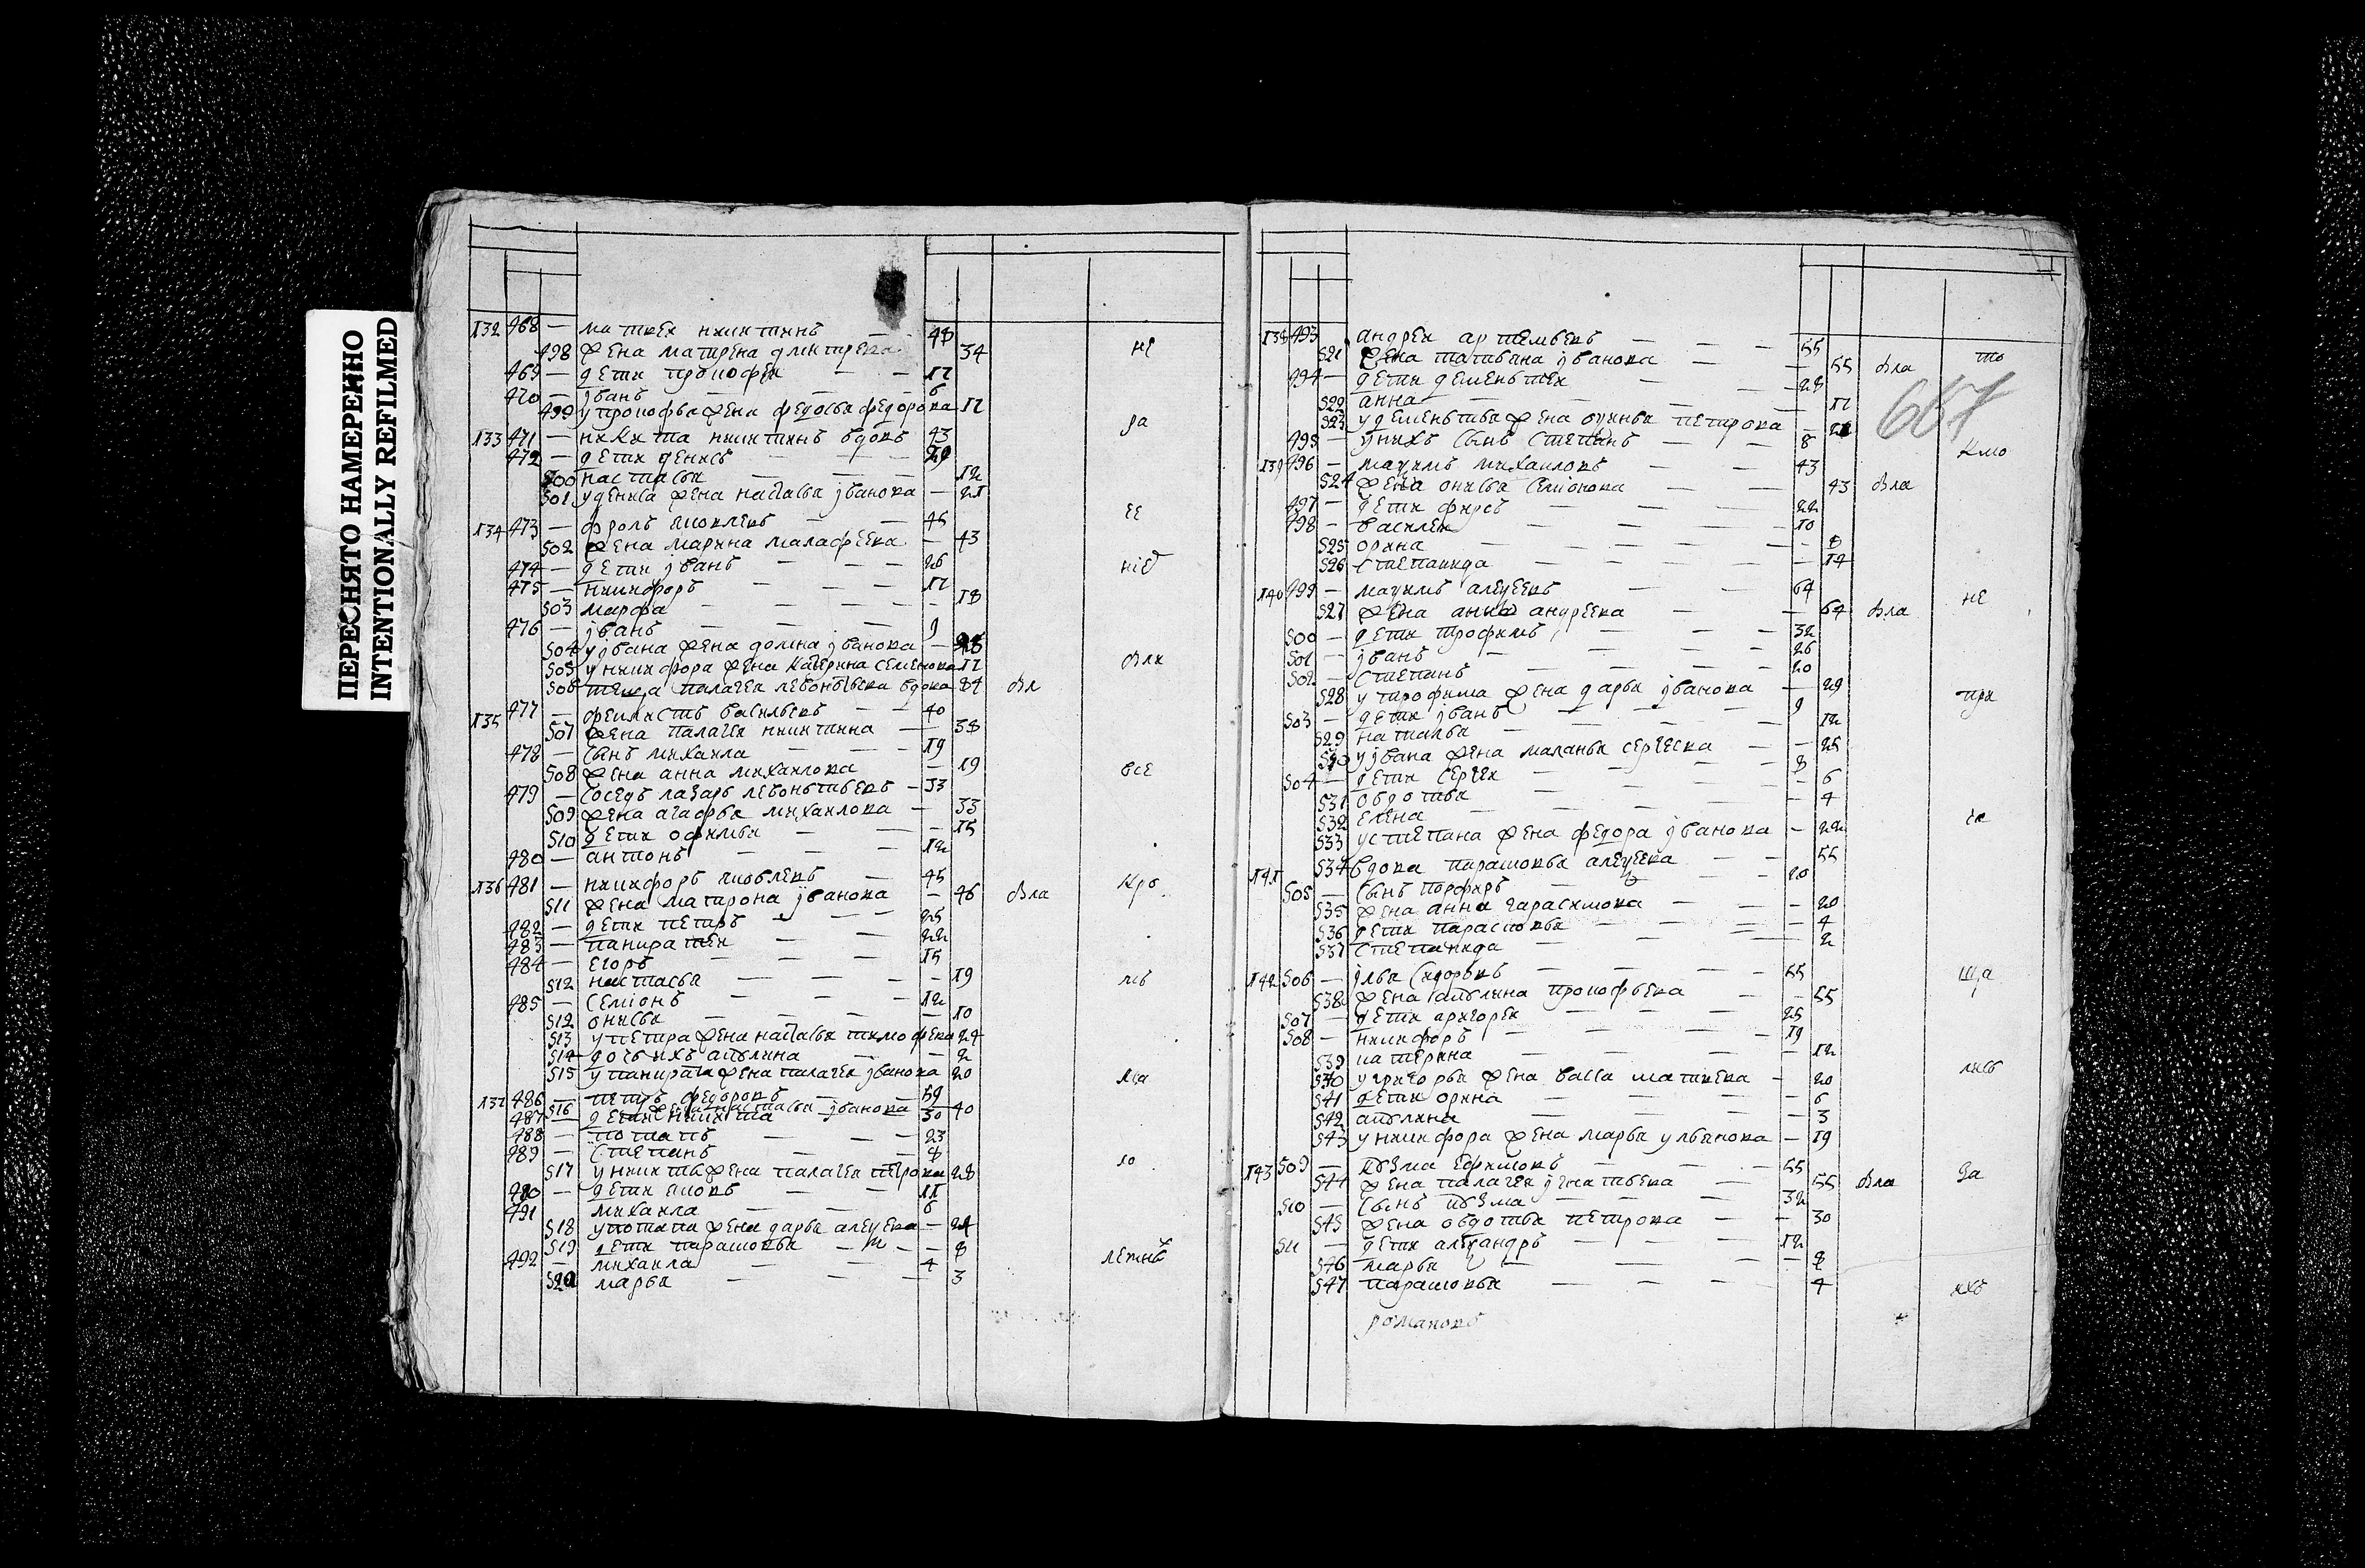 ПЕРЕСНЯТО НАМЕРЕННО
INTENTIONALLY REFILMED
132 468 — матвеи никитинъ — 48
498 жена матрена дмитрева 34 не
469 — дети прокофеи — — 17
470 — іванъ — — 6
499 у прокофья жена федосья федорова 17 да
133 471 — никита никитинъ вдовъ 43
472 — дети денисъ — — 29
500 настасья — — 12
501 у дениса жена настасья іванова — 21
134 473 — фролъ яковлевъ — — 45 ее
502 жена марина малафеева — 43
474 — дети іванъ — — — 26 ніе
475 — никифоръ — — — 17
503 марфа — — — — 18
476 — іванъ — — — 9
504 у івана жена домна іванова —
505 у никифора жена катерина семенова 17 Али
506 теща палагея левонтьева вдова 84 Ал
135 477 — феклистъ васильевъ — — 40
507 жена палагея никитина — 38
478 — сынъ михаила — — 19
508 жена анна михаилова — 19 все
479 — соседъ лазарь левонтьевъ — 33
509 жена агафья михаилова — 33
510 дети офимья — — 15
480 — антонъ — — — 12
136 481 — никифоръ яковлевъ — 45 кро
511 жена матрона іванова — 46 Ала
482 — дети петръ — — 25
483 — панкратеи — — 22
484 — егоръ — — — 15
512 настасья — — — 19 мъ
485 — семіонъ — — — 12
512 онисья — — — — 10
513 у петра жена настасья тимофеева 24
514 дочь ихъ авълина — — 2
515 у панкрата жена палагея іванова 20
137 486 — петръ федоровъ — 59
516 жена настасья іванова 40
487 — дети никита 30
488 — потапъ — — — 23
489 — степанъ — — — 8
517 у никиты жена палагея петрова 28 ло
490 — дети яковъ — — 11
491 михаила — — 6
518 у потапа жена дарья алеѯева — 24
519 дети парасковья — — — 8
492 — михаила — — 4 летнѣ
520 марья — — — 3
138 493 андреи артемьевъ — — — 55
521 жена татьяна іванова — — 55 Ала то
494 — дети дементеи — — — 28
522 анна — — — — 17
523 у дементья жена оѯинья петрова — 21
667
495 — у нихъ сынъ степанъ — — 8 кмо
139 496 — маѯимъ михаиловъ — — 43
524 жена онисья семіонова — — 43 Ала
497 — дети фирсъ — — — 22
498 — василеи — — — 10
525 орина — — — — 8
526 степанида — — — — 14
140 499 — маѯимъ алеѯеевъ — — 64
527 жена анна андреева — — 64 Ала не
500 — дети трофимъ — — — 32
501 — іванъ — — — 26
502 — степанъ — — — 20
528 у трофима жена дарья іванова — 29 при
503 — дети іванъ — — — 9
529 наталья — — — 12
530 у івана жена маланья сергеева — — 25
504 — дети сергеи — — — 8
531 овдотья — — — 6
532 елена — — — 4
533 у степана жена федора іванова — 22
141 534 вдова парасковья алеѯеева — — 55
505 — сынъ порфиръ — — 20
535 жена анна гарасимова — — 20
536 дети парасковья — — — 4
537 степанида — — — 2
142 506 — ілья сидоровъ — — — 55 ща
538 жена авълина прокофьева — — 55
507 — дети григореи — — — 25
508 — никифоръ — — — 19
539 катерина — — — — 12
540 у григорья жена васса матвеева — 20
541 дети орина — — — — 6
542 авълина — — — — 3
543 у никифора жена марья ульянова — 19
143 509 — кузма ефимовъ — — — 55
544 жена палагея ігнатьева — 55 Ала за
510 — сынъ кузма — — — 32
545 жена овдотья петрова — — 30
511 — дети алеѯандръ — — — 12
546 марья — — — —
547 парасковья — — — — 4 ихъ
романовъ